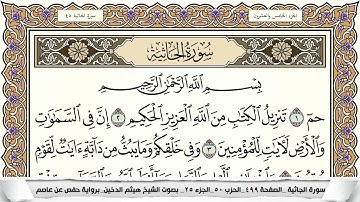 الجزء الخامس والعشرون
سورة الجاثية ٤٥
سُورَةُ الجَاثِيَةِ
بِسْمِ اللَّهِ الرَّحْمَٰنِ الرَّحِيمِ
حمٓ ١ تَنزِيلُ الْكِتَٰبِ مِنَ اللَّهِ الْعَزِيزِ الْحَكِيمِ ٢ إِنَّ فِي السَّمَٰوَٰتِ
وَالْأَرْضِ لَءَايَٰتٍ لِّلْمُؤْمِنِينَ ٣ وَفِي خَلْقِكُمْ وَمَا يَبُثُّ مِن دَآبَّةٍ ءَايَٰتٌ لِّقَوْمٍ
سورة الجاثية _الصفحة ٤٩٩_ الحزب ٥٠_الجزء ٢٥_ بصوت الشيخ هيثم الدخين_برواية حفص عن عاصم